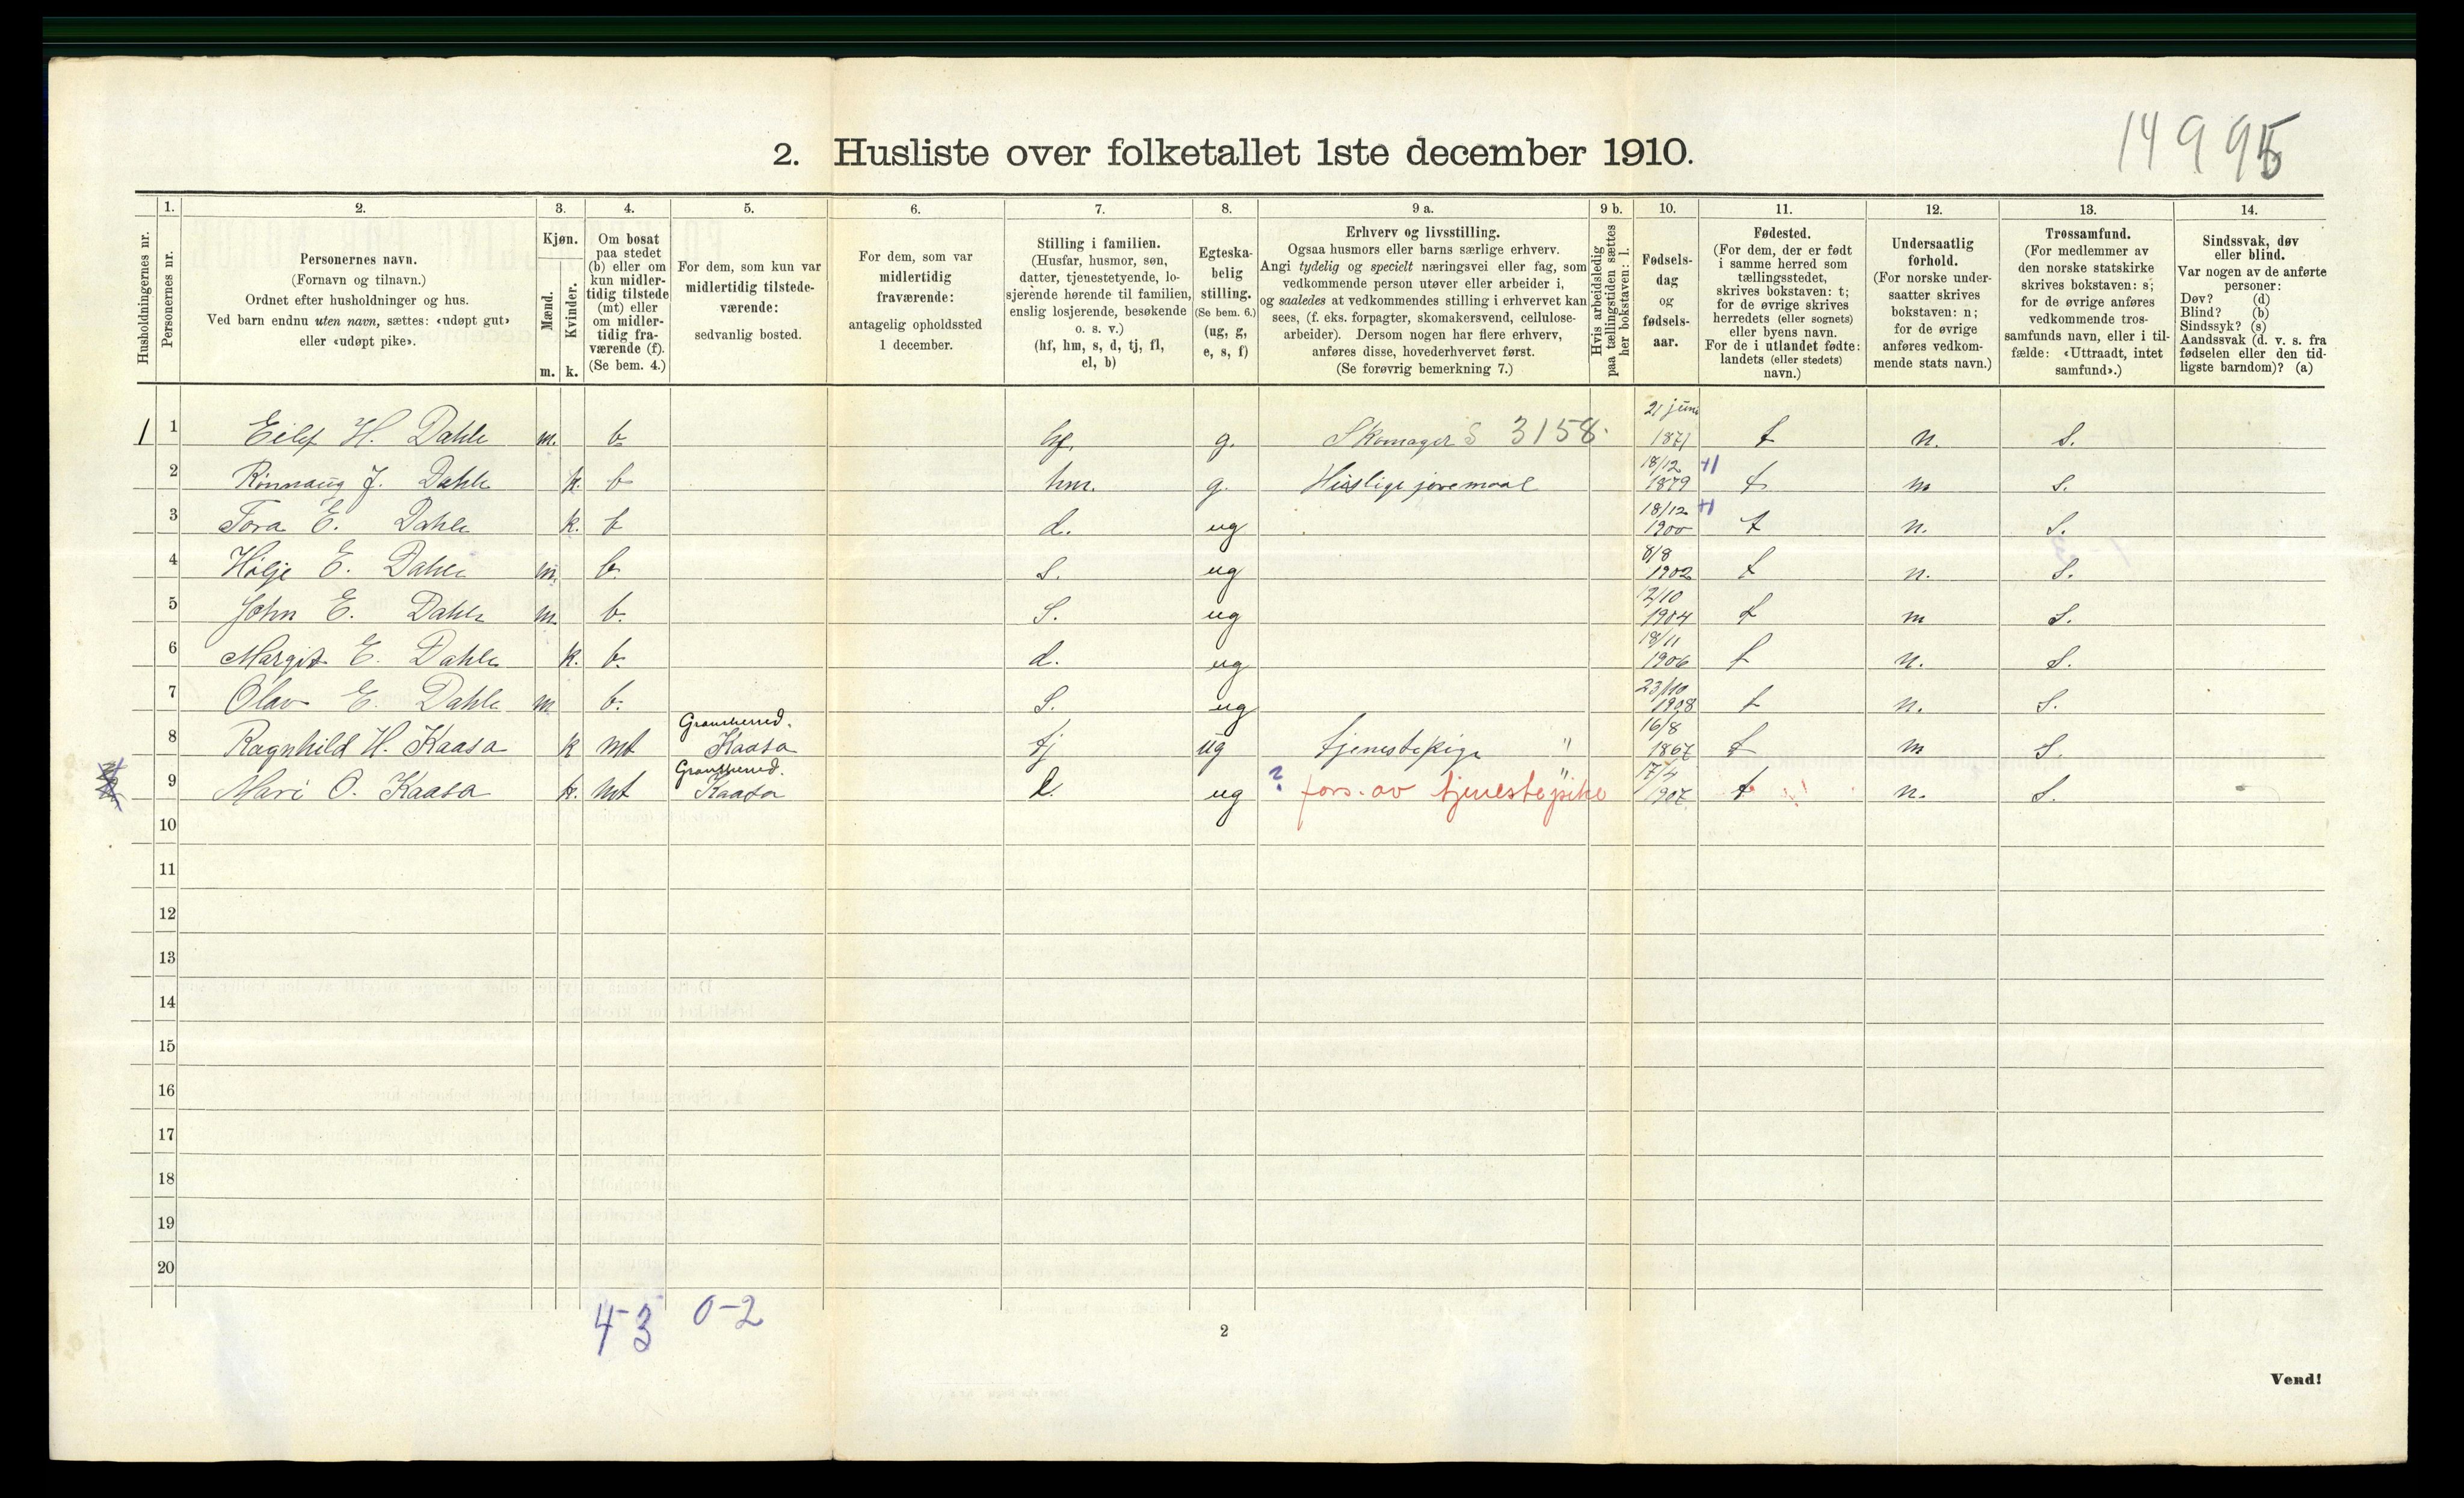 14995
2. Husliste over folketallet 1ste december 1910.
Husholdningernes nr.
1.
Personernes nr.
2.
Personernes navn.
(Fornavn og tilnavn.)
Ordnet efter husholdninger og hus.
Ved barn endnu uten navn, sættes: «udøpt gut»
eller «udøpt pike».
3.
Kjøn.
Mænd.
Kvinder.
m. k.
4.
Om bosat
paa stedet
(b) eller om
kun midler-
tidig tilstede
(mt) eller
om midler-
tidig fra-
værende (f).
(Se bem. 4.)
5.
For dem, som kun var
midlertidig tilstede-
værende:
sedvanlig bosted.
6.
For dem, som var
midlertidig
fraværende:
antagelig opholdssted
1 december.
7.
Stilling i familien.
(Husfar, husmor, søn,
datter, tjenestetyende, lo-
sjerende hørende til familien,
enslig losjerende, besøkende
o. s. v.)
(hf, hm, s, d, tj, fl,
el, b)
8.
Egteska-
belig
stilling.
(Se bem. 6.)
(ug, g,
e, s, f)
9 a.
Erhverv og livsstilling.
Ogsaa husmors eller barns særlige erhverv.
Angi tydelig og specielt næringsvei eller fag, som
vedkommende person utøver eller arbeider i,
og saaledes at vedkommendes stilling i erhvervet kan
sees, (f. eks. forpagter, skomakersvend, cellulose-
arbeider). Dersom nogen har flere erhverv,
anføres disse, hovederhvervet først.
(Se forøvrig bemerkning 7.)
9 b.
Hvis arbeidsledig
paa tællingstiden sættes
her bokstaven: l.
10.
Fødsels-
dag
og
fødsels-
aar.
11.
Fødested.
(For dem, der er født
i samme herred som
tællingsstedet,
skrives bokstaven: t;
for de øvrige skrives
herredets (eller sognets)
eller byens navn.
For de i utlandet fødte:
landets (eller stedets)
navn.)
12.
Undersaatlig
forhold.
(For norske under-
saatter skrives
bokstaven: n;
for de øvrige
anføres vedkom-
mende stats navn.)
13.
Trossamfund.
(For medlemmer av
den norske statskirke
skrives bokstaven: s;
for de øvrige anføres
vedkommende tros-
samfunds navn, eller i til-
fælde: «Uttraadt, intet
samfund».)
14.
Sindssvak, døv
eller blind.
Var nogen av de anførte
personer:
Døv? (d)
Blind? (b)
Sindssyk? (s)
Aandssvak (d. v. s. fra
fødselen eller den tid-
ligste barndom)? (a)
1 1 Eilef H. Dahle m. b hf. g. Skomager S 3158. 21 juni 1871 t n. S.
2 Rønnaug J. Dahle k. b hm. g. Huslige jøremaal 18/12 1879 +1 t n S.
3 Tora E. Dahle k. b d. ug 18/12 1900 +1 t n. S.
4 Hølje E. Dahle m. b. S. ug 8/8 1902 t n. S.
5 John E. Dahle m. b. S. ug 12/10 1904 t n S.
6 Margit E. Dahle k. b. d. ug 18/11 1906 t n. S.
7 Olav E. Dahle m b. S. ug 23/10 1908 t n. S.
8 Ragnhild H. Kaasa k mt Gransherred. Kaasa tj ug tjenestepige " 16/8 1867 t n S.
9 Mari O. Kaasa k. mt Gransherred. Kaasa ug ? fors. av tjenestepike " 17/4 1907 t n. S.
10
11
12
13
14
15
16
17
18
19
20
4-3 0-2
2
Vend!